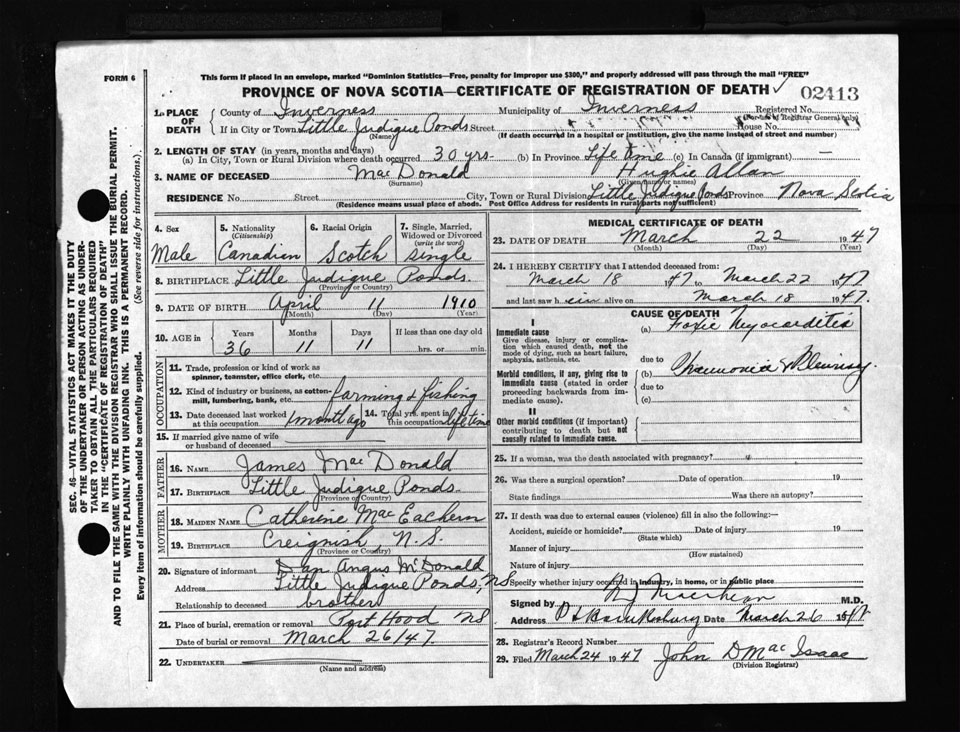 FORM 6
This form if placed in an envelope, marked "Dominion Statistics—Free, penalty for improper use $300," and properly addressed will pass through the mail "FREE"
PROVINCE OF NOVA SCOTIA—CERTIFICATE OF REGISTRATION OF DEATH ✓ 02413
1. PLACE OF DEATH
County of Inverness Municipality of Inverness Registered No.
(For use of Registrar General only)
If in City or Town Little Judique Ponds Street House No.
(Name) (If death occurred in a hospital or institution, give the name instead of street and number)
2. LENGTH OF STAY (in years, months and days)
(a) In City, Town or Rural Division where death occurred 30 yrs. (b) In Province Life time (c) In Canada (if immigrant) —
3. NAME OF DECEASED Mac Donald Hughie Allan
(Surname) (Given name or names)
RESIDENCE No. Street City, Town or Rural Division Little Judique Ponds Province Nova Scotia
(Residence means usual place of abode. Post Office Address for residents in rural parts not sufficient)
4. Sex
Male
5. Nationality
(Citizenship)
Canadien
6. Racial Origin
Scotch
7. Single, Married, Widowed or Divorced
(write the word)
single
8. BIRTHPLACE Little Judique Ponds.
(Province or Country)
9. DATE OF BIRTH April 11 1910
(Month) (Day) (Year)
10. AGE in
Years Months Days If less than one day old
36 11 11 hrs. or min.
OCCUPATION
11. Trade, profession or kind of work as spinner, teamster, office clerk, etc.
12. Kind of industry or business, as cotton-mill, lumbering, bank, etc. farming & fishing
13. Date deceased last worked at this occupation 1 month ago 14. Total yrs. spent in this occupation life time
15. If married give name of wife or husband of deceased
FATHER
16. NAME James Mac Donald
17. BIRTHPLACE Little Judique Ponds.
(Province or Country)
MOTHER
18. MAIDEN NAME Catherine Mac Eachern
19. BIRTHPLACE Creignish, N.S.
(Province or Country)
20. Signature of informant Dan Angus McDonald
Address Little Judique Ponds, NS
Relationship to deceased brother
21. Place of burial, cremation or removal Port Hood NS
Date of burial or removal March 26/47.
22. UNDERTAKER
(Name and Address)
MEDICAL CERTIFICATE OF DEATH
23. DATE OF DEATH March 22 1947
(Month) (Day) (Year)
24. I HEREBY CERTIFY that I attended deceased from:
March 18 1947 to March 22 1947.
and last saw him alive on March 18 1947.
CAUSE OF DEATH
I
Immediate cause
Give disease, injury or complication which caused death, not the mode of dying, such as heart failure, asphyxia, asthenia, etc.
(a) Toxic Myocarditis
due to
Morbid conditions, if any, giving rise to immediate cause (stated in order proceeding backwards from immediate cause).
(b) Pneumonia & Pleurisy
due to
(c)
II
Other morbid conditions (if important) contributing to death but not causally related to immediate cause.
25. If a woman, was the death associated with pregnancy?
26. Was there a surgical operation? Date of operation 19
State findings Was there an autopsy?
27. If death was due to external causes (violence) fill in also the following:—
Accident, suicide or homicide? Date of injury 19
(State which)
Manner of injury
(How sustained)
Nature of injury
Specify whether injury occurred in industry, in home, or in public place
Signed by M.D.
Address Date March 26 1947
28. Registrar's Record Number
29. Filed March 24 1947 John D Mac Isaac
(Division Registrar)
SEC. 46—VITAL STATISTICS ACT MAKES IT THE DUTY
OF THE UNDERTAKER OR PERSON ACTING AS UNDERTAKER
TO OBTAIN ALL THE PARTICULARS REQUIRED
IN THE "CERTIFICATE OF REGISTRATION OF DEATH"
AND TO FILE THE SAME WITH THE DIVISION REGISTRAR WHO SHALL ISSUE THE BURIAL PERMIT.
WRITE PLAINLY WITH UNFADING INK. THIS IS A PERMANENT RECORD.
Every item of information should be carefully supplied. (See reverse side for instructions.)